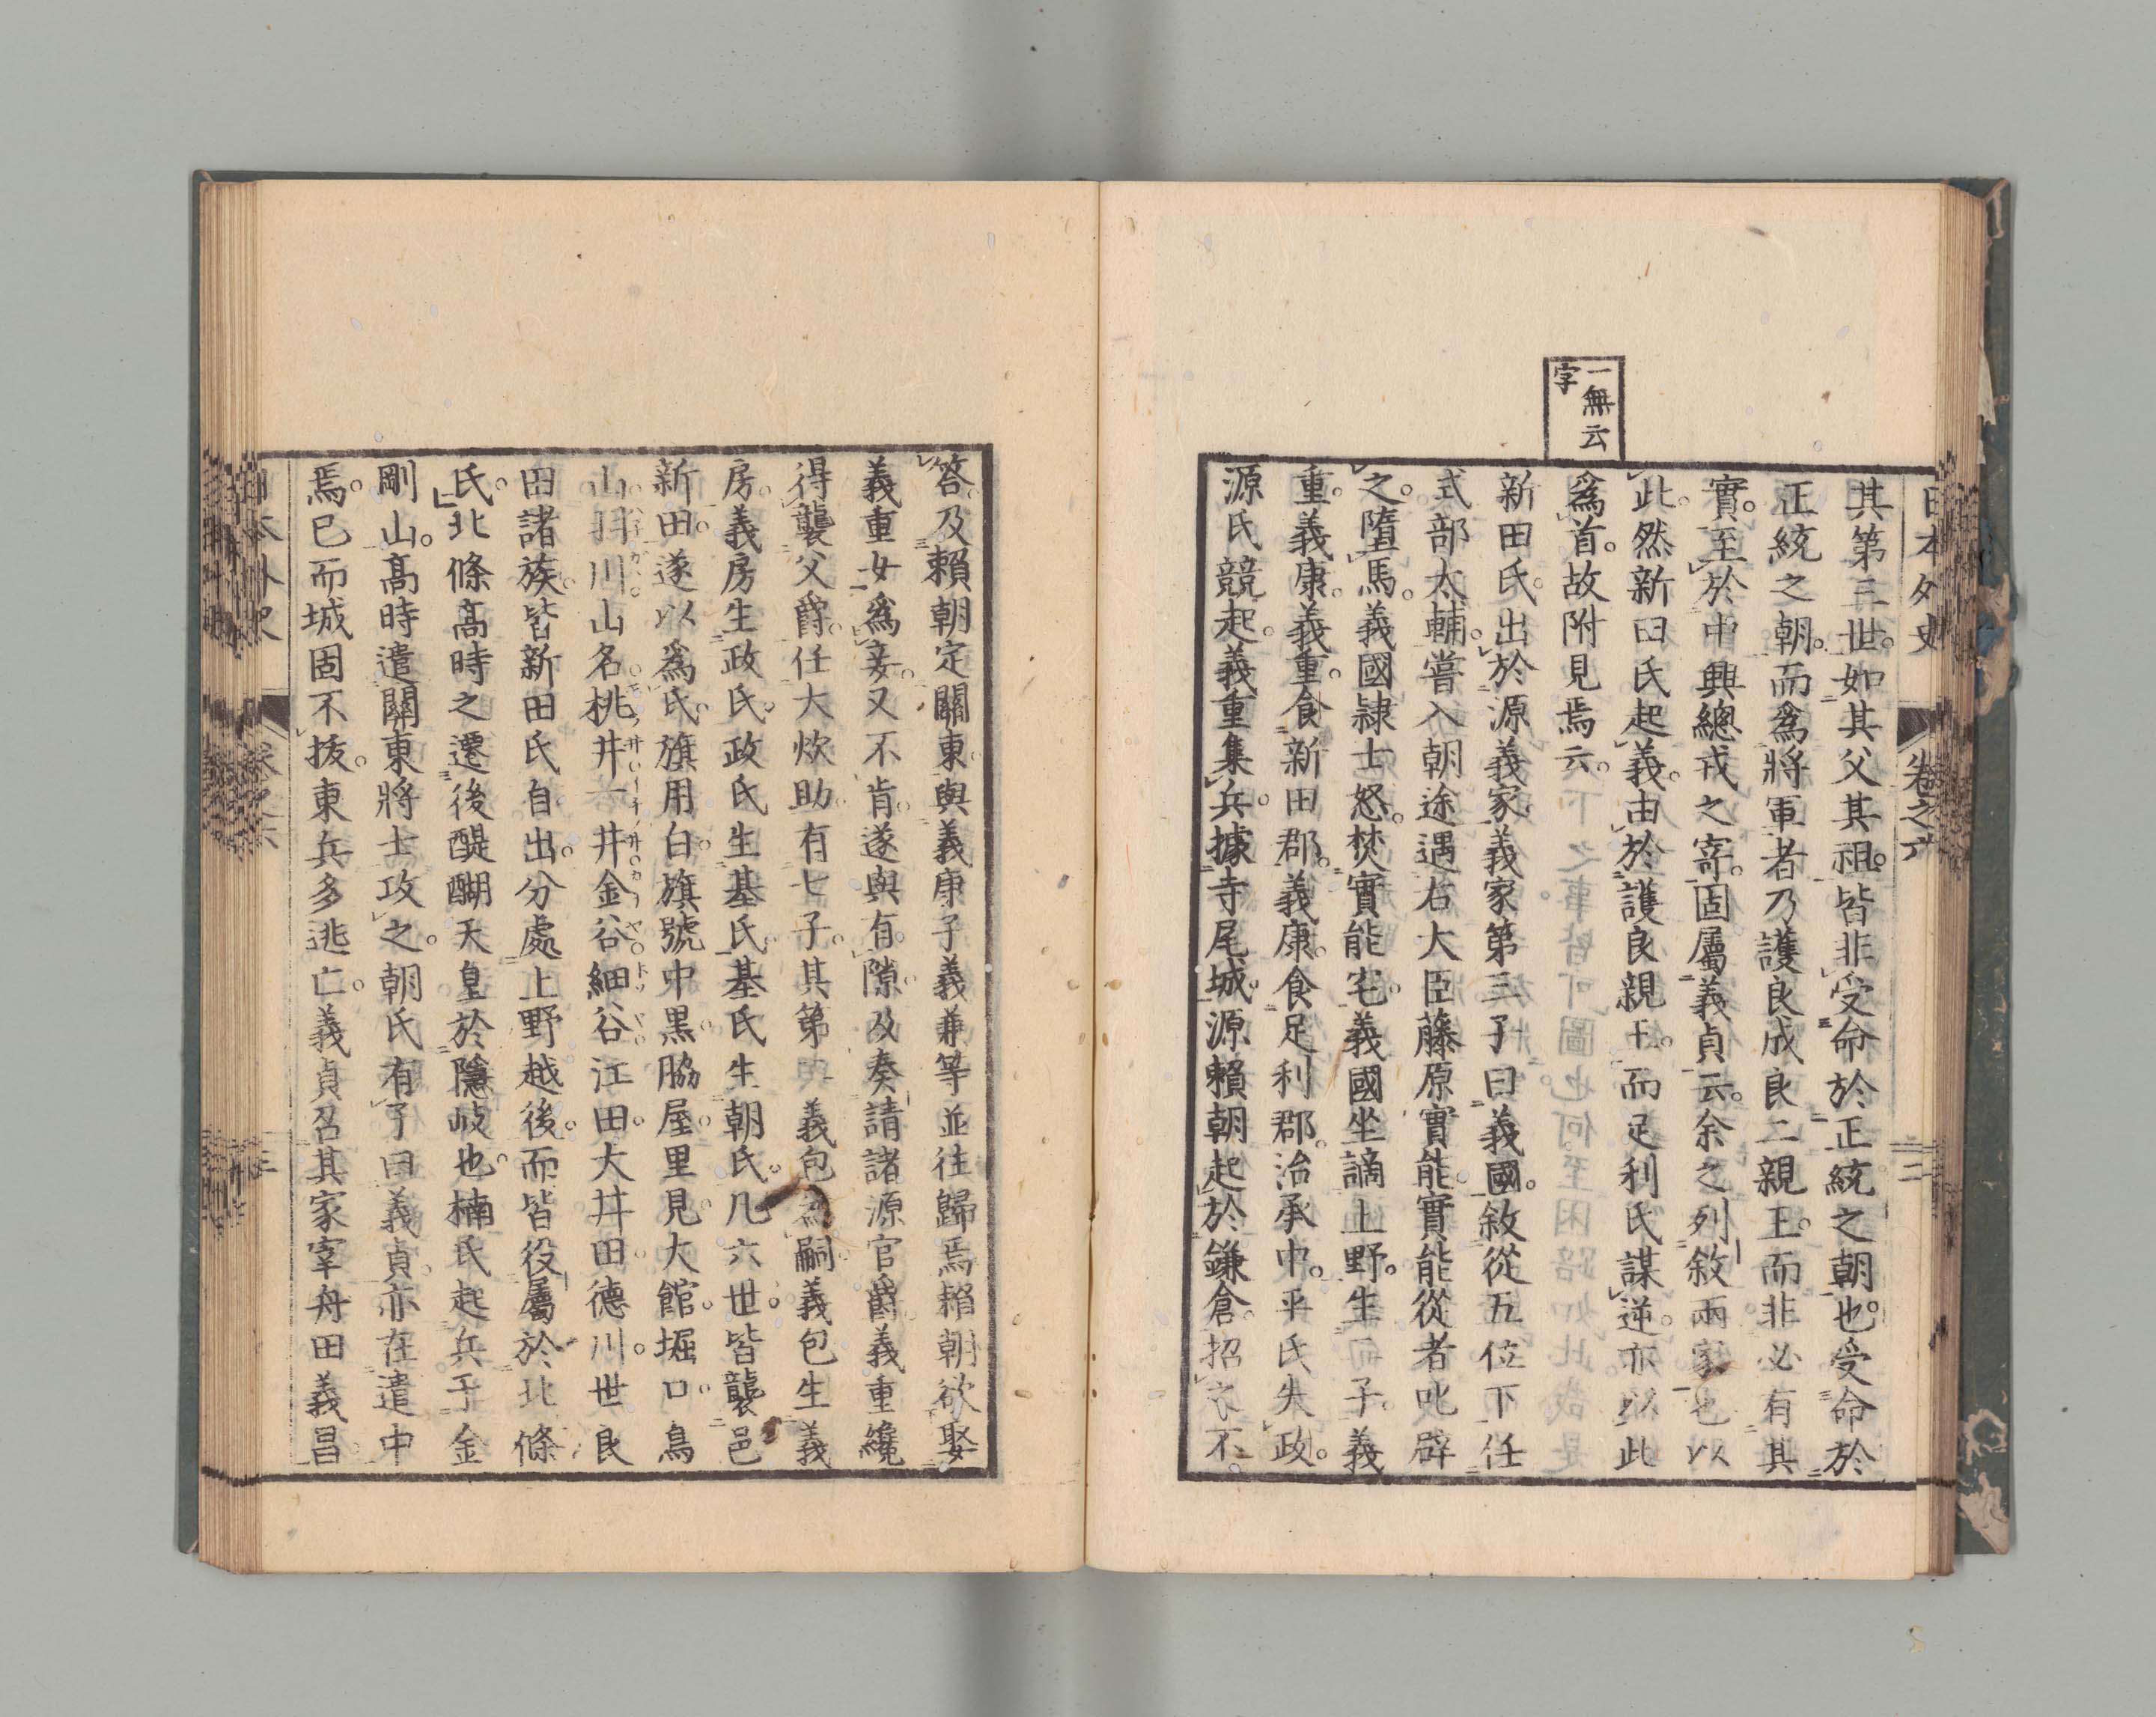 日本外史 卷之六 二
一無云
字
其第三世。如其父其祖。皆非受命於正統之朝也。受命於
正統之朝。而爲將軍者乃護良成良二親王。而非必有其
實。至於中興總戎之寄。固屬義貞云。余之列敘兩家也以
此。然新田氏起義。由於護良親王。而足利氏謀逆。亦以此
爲首。故附見焉云。
新田氏。出於源義家。義家第三子曰義國。敘從五位下任
式部太輔。嘗入朝途遇右大臣藤原實能。實能從者叱辟
之。墮馬。義國隷士怒。焚實能宅。義國坐謫上野。生二子。義
重。義康。義重。食新田郡。義康。食足利郡。治承中。平氏失政。
源氏競起。義重集兵。據寺尾城。源賴朝起於鎌倉。招之不。
答。及賴朝定關東。與義康子義兼等並往歸焉賴朝欲娶
義重女爲妾。又不肯。遂與有隙。及奏請諸源官爵。義重纔
得襲父爵。任大炊助。有七子。其第 義包爲嗣。義包生義
房。義房生政氏。政氏生基氏。基氏生朝氏。凡六世。皆襲邑
新田。遂以爲氏。旗用白。旗號中黒。脇屋。里見。大館。堀口。鳥
山。羽川。山名。桃井。一井。金谷。細谷。江田。大井田。德川。世良
田諸族。皆新田氏自出。分處上野越後。而皆役屬於北條
氏。北條高時之遷後醍醐天皇於隱岐也。楠氏起兵于金
剛山。高時遣關東將士攻之。朝氏有子曰義貞。亦在遣中
焉。已而城固不拔。東兵多逃亡。義貞召其家宰舟田義昌。
日本外史 卷之六 三